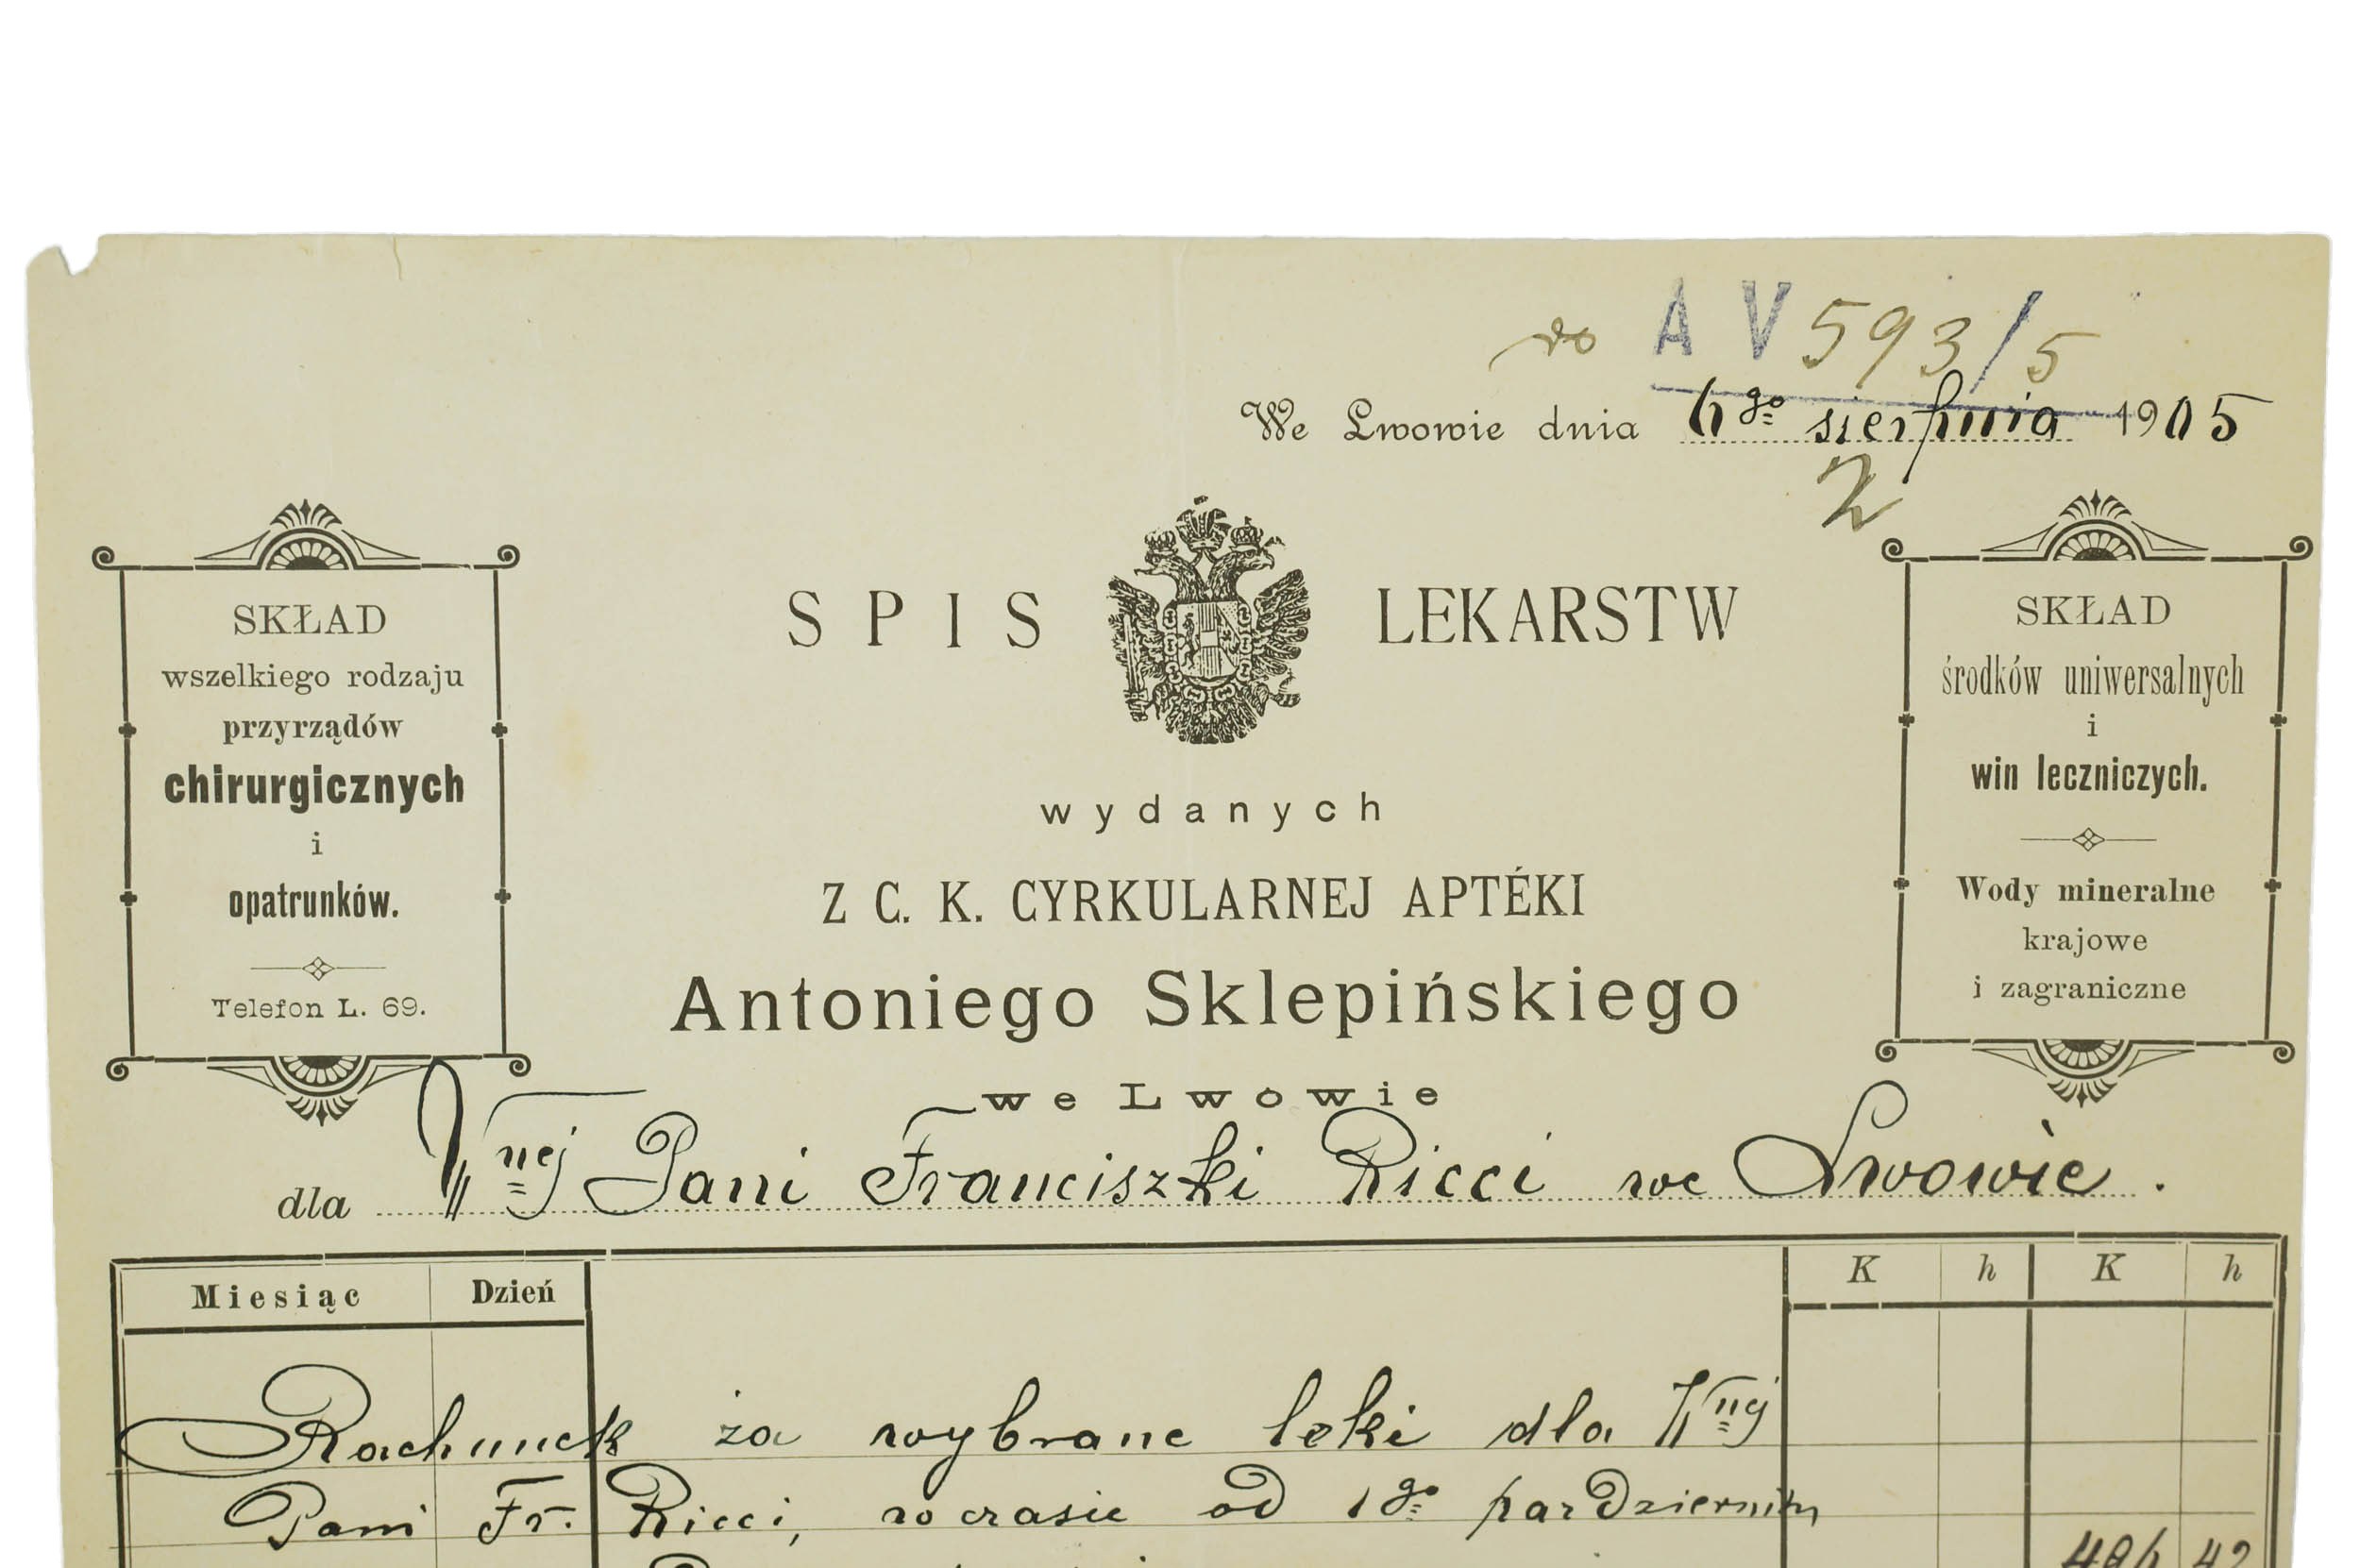 do A V 593/5
We Lwowie dnia 6go sierpnia 1905
2
SKŁAD
wszelkiego rodzaju
przyrządów
chirurgicznych
i
opatrunków.
Telefon L. 69.
SPIS LEKARSTW
wydanych
Z C. K. CYRKULARNEJ APTÉKI
Antoniego Sklepińskiego
we Lwowie
SKŁAD
środków uniwersalnych
i
win leczniczych.
Wody mineralne
krajowe
i zagraniczne
dla Wnej Pani Franciszki Ricci we Lwowie.
Miesiąc Dzień K h K h
Rachunek za wybrane leki dla Wnej
Pani Fr. Ricci, w czasie od 1go październik
42